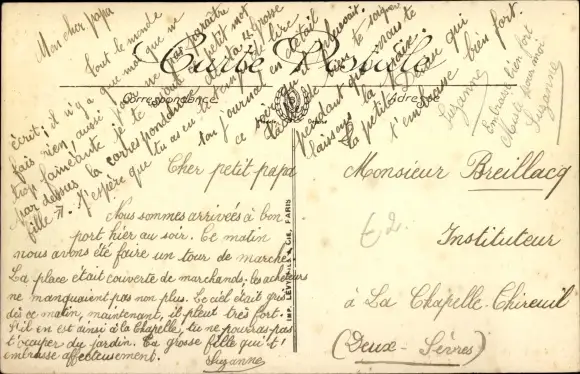 Carte Postale
Correspondance
Adresse
Mon cher papa
Tout le monde
écrit; il n'y a que moi que ne
fais rien, aussi pour ne pas paraître
trop fainéante je te
par dessus la correspondance
fille 7. J'espère que tu as eu le temps de lire
ton journal en détail
ce
pendant que nous te
laissons la
La petite Deuse qui
t'embrasse bien fort.
Suzanne
Embrasse bien fort
pour moi
Suzanne
Cher petit papa
Nous sommes arrivées à bon
port hier au soir. Ce matin
nous avons été faire un tour de marché
La place était couverte de marchands; les acheteurs
ne manquaient pas non plus. Le ciel était gris
dès ce matin, maintenant, il pleut très fort.
S'il en est ainsi à la Chapelle, tu ne pourras pas
t'occuper du jardin. Ta grosse fille qui t'
embrasse affectueusement.
Suzanne
IMP. LÉVY FILS & CIE, PARIS
Monsieur Breillacq
Instituteur
à La Chapelle-Thireuil
(Deux-Sèvres)